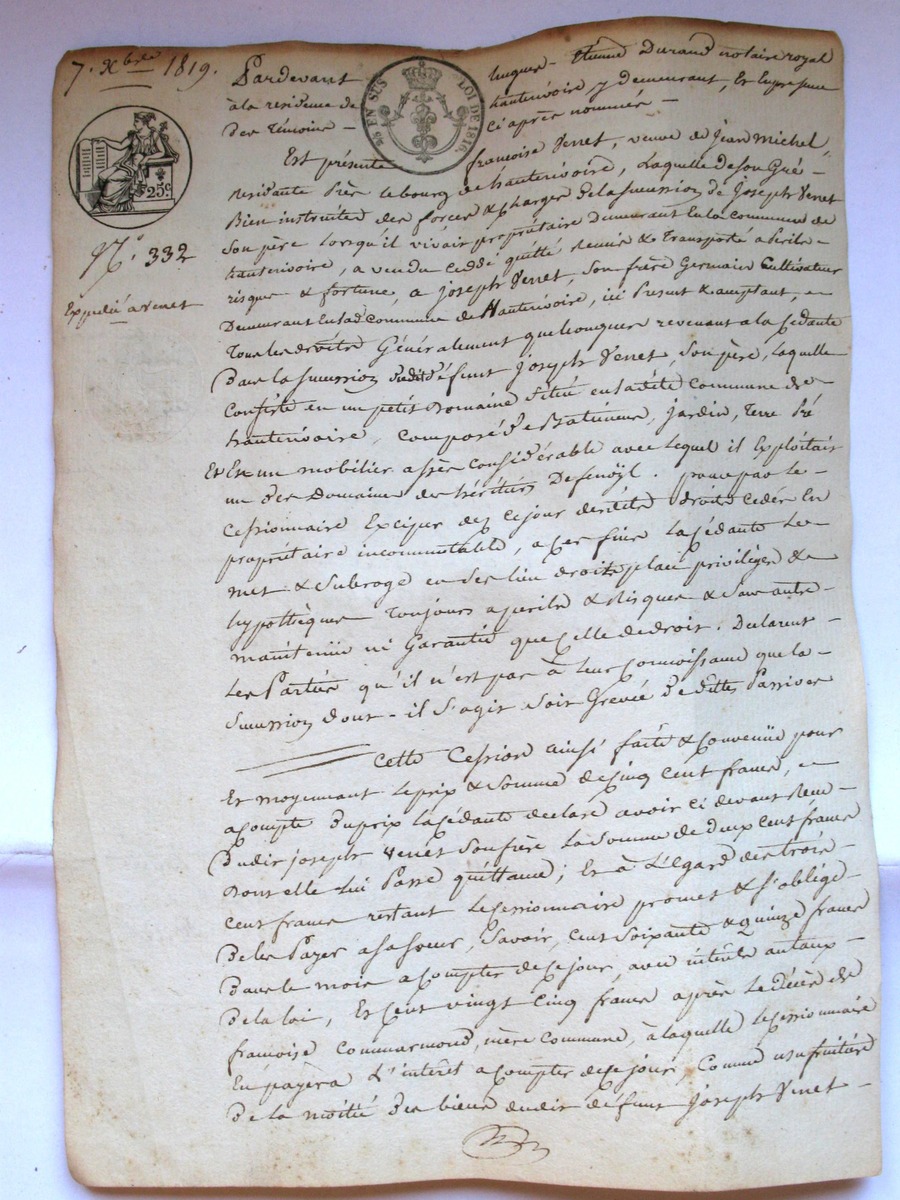 7. Xbre 1819.
25 c.
N.° 332
Expédié a Venet
⅕ EN SUS LOI DE 1816.
Pardevant hugues - Etienne Durand notaire royal
à la residence de hauterivoire y demeurant, Et En presence
Des Témoins - ci après nommés -
Est présente françoise Venet, veuve de Jean Michel,
residante Rière le bourg de hauterivoire, Laquelle De Son Gré -
Bien instruitee des forces & charges de la Succession de Joseph Venet
Son père lorsqu'il vivait propriétaire Demeurant En la Commune de
hauterivoire, a vendu Ceddé quitté Remis & Transporté a Péril -
risques & fortune, a Joseph Venet, Son frère Germain Cultivateur
Demeurant En lad Commune de Hauterivoire, ici Présent & acceptant, -
Tous les droits Généralement quelconques revenant a la Cédante
Dans la Succession dudit défunt Joseph Venet, Son père, laquelle
Consiste en un petit Domaine Situé en ladite Commune de -
hauterivoire, Composé de Batiments, Jardin, Terre Pré
Et En un mobilier assès Considérable avec lequel il Exploitait
un des Domaines des héritiers Defenöyl. pour par le -
Cessionnaire Exciper dez Ce jour desdits droits cédés En
propriétaire incommutable, a ces fins la Cédante Le -
met & Subroge en Ses lieu droits place privilèges &
hypothèques Toujours a périls & Risques & Sans autre -
maintenüe ni Garantie que Celle de droit. Déclarent -
Les Parties qu'il n'est pas à leur Connoissance que la -
Succession dont - il S'agit Soit Grevée de dettes Passives
Cette Cession ainsi faite & Convenüe pour
Et moyennant le prix & Somme de Cinq Cent francs, -
a Compte du prix la Cédante déclare avoir ci devant Reçu -
Dudit joseph Venet Son frère la Somme de deux Cent francs
Dont elle lui Passe quittance; Et à L'égard des trois -
Cent francs restant le Cessionnaire promet & S'oblige
De les Payer a Sa Soeur, Savoir, Cent Soixante & quinze francs
Dans le mois a Compter de Ce jour, avec intérêts au taux -
De la loi, Et Cent vingt Cinq francs après le décès de
françoise Commarmond, mère Commune, à laquelle le Cessionnaire
En payera L'intérêt a Compter de Ce jour, Comme usufruitière
De la moitié des biens dudit défunt Joseph Venet -